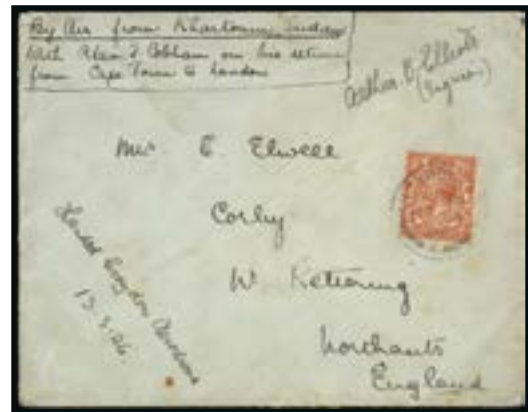 By Air from Khartoum, Sudan
With Alan J Cobham on his return
from Cape Town to London
Arthur. B. Elliott
(Engineer)
Mrs E. Elwell
Corby
Nr Kettering
Northants
England
Landed Croydon Aerodrome
13.3.26.